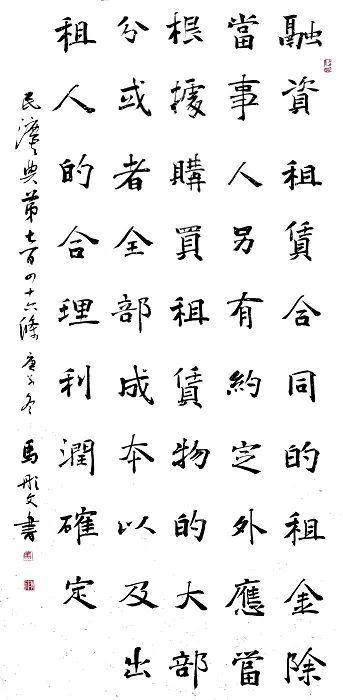 融資租賃合同的租金除
當事人另有約定外應當
根據購買租賃物的大部
分或者全部成本以及出
租人的合理利潤確定
民灋典第七百四十六條 庚子冬 馬彤文書